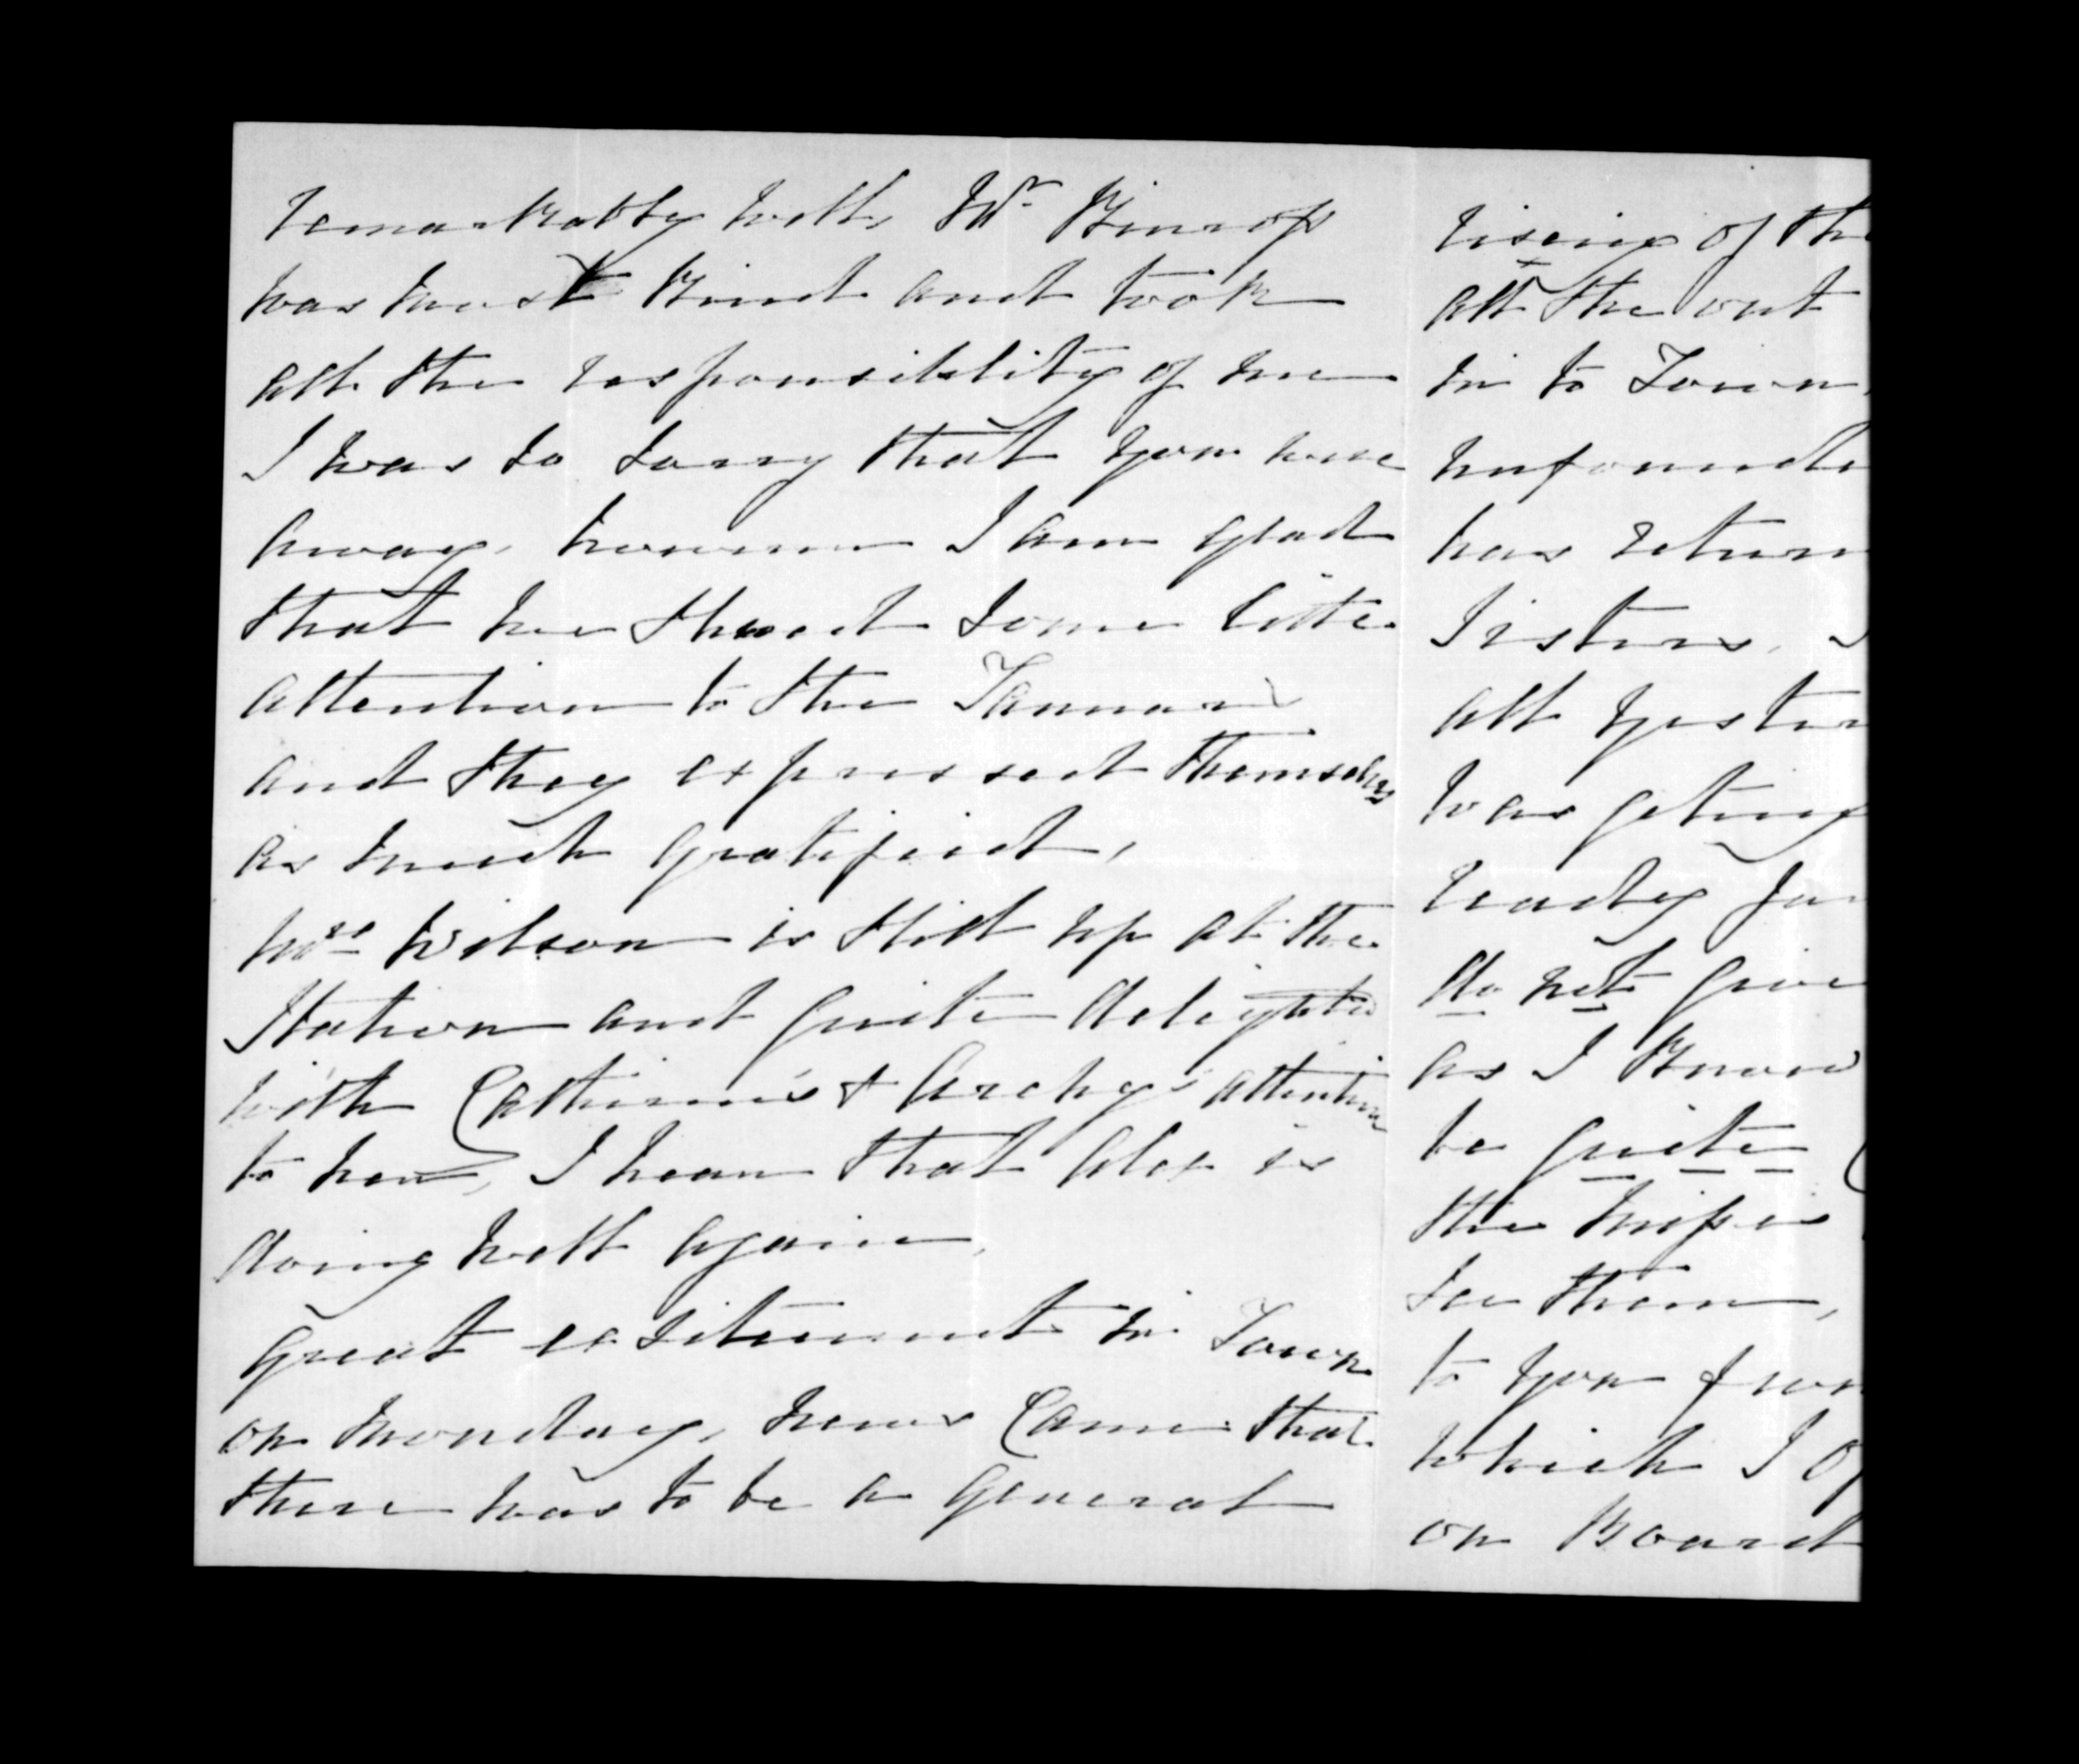 remarkably well, Mr Kinross
was most kind and took
all the responsibility of me
I was so sorry that you were
away, however I am glad
that we showed some little
attention to the
and they expressed themselves
as much gratified,
Mrs Wilson is still up at the
Station and quite delighted
with Catherine's & Archy's attention
to her, I hear that Alex is
doing well again,
great exsitement in Town
on Monday, news came that
there was to be a general
rising of the
all the out
in to Town,
unfounde
has return
Sisters,
all yester
was geting
ready for
do not give
as I know
be quite
the
see them,
to you from
which I
on Board